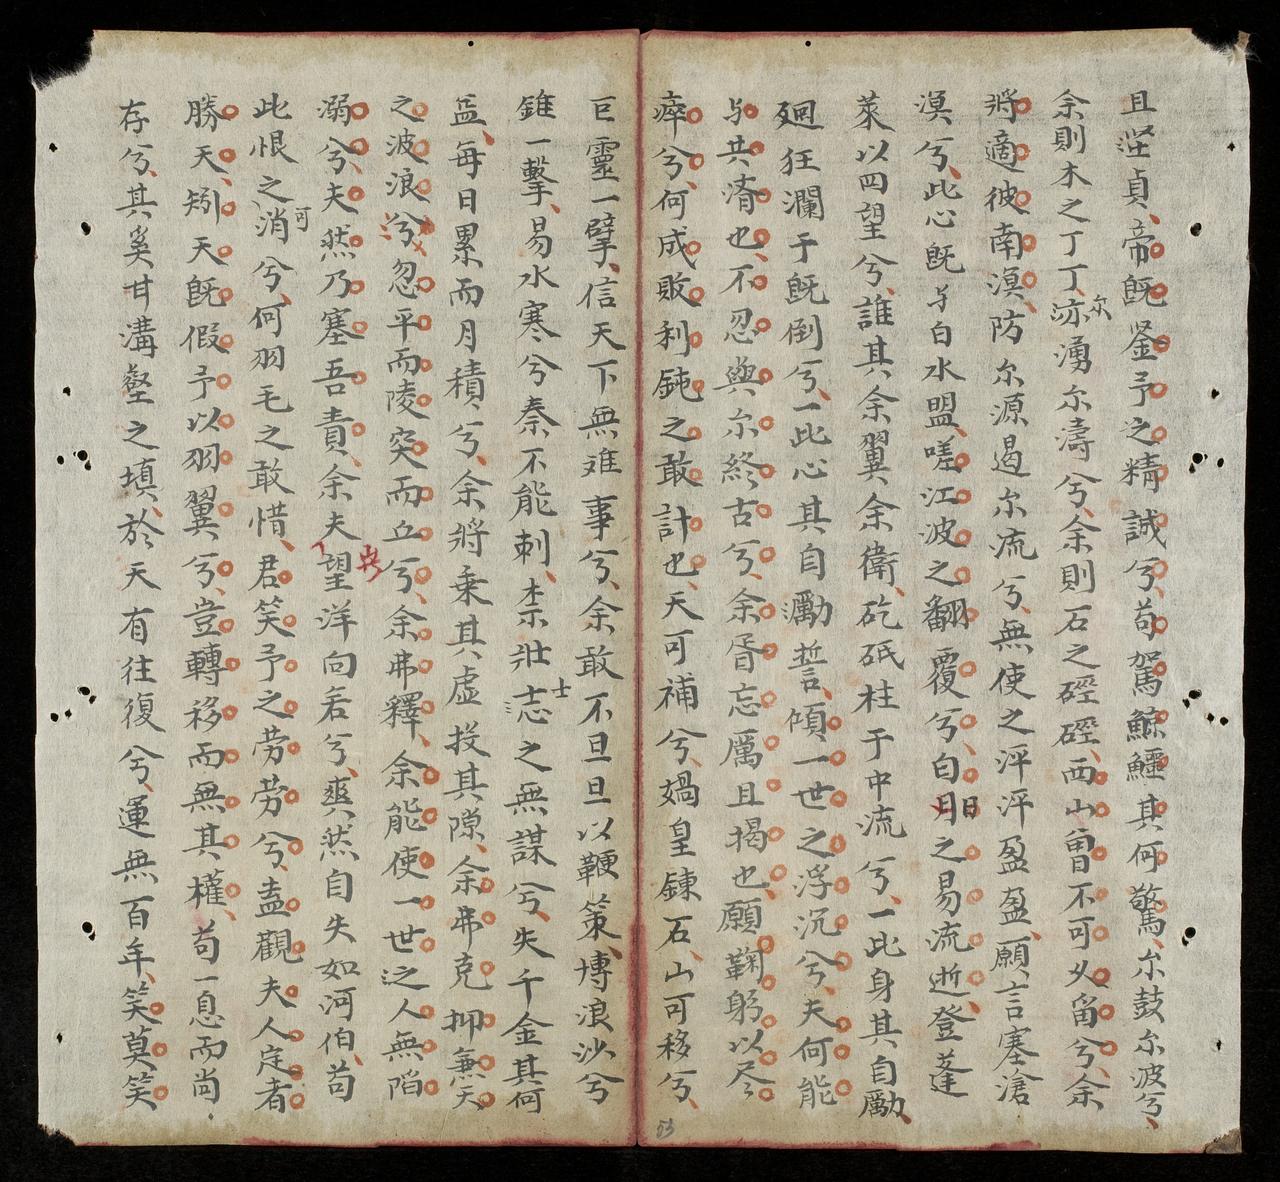 且茔貞、帝既鉴予之精誠兮、苟駕鯨鱷其何驚、尔鼓尔波兮、
余則木之丁丁、沵湧尔濤兮、余則石之硜硜、西山曾不可以留兮、余
尔
將適彼南溟、防尔源遏尔流兮、無使之泙泙盈盈、願言塞滄
溟兮、此心既与白水盟、嗟江波之翻覆兮、白月之易流逝、登蓬
日
萊以四望兮、誰其余翼余衛、矻砥柱于中流兮、一此身其自勵、
廻狂瀾于既倒兮、一此心其自勵誓、傾一世之浮沉兮、夫何能
与共濟也、不忍與尔終古兮、余胥忘厲且揭也、願鞠躬以尽
瘁兮、何成敗利鈍之敢計也、天可補兮、媧皇鍊石、山可移兮、
巨靈一擘、信天下無难事兮、余敢不旦旦以鞭策、博浪沙兮
錐一擊、易水寒兮秦不能刺、柰壯志之無謀兮、失千金其何
士
益、每日累而月積兮、余將乘其虛投其隙、余弗克抑兼天
之波浪兮忽平而陵突而丘兮、余弗釋、余能使一世之人無陷
溺兮、夫然乃塞吾責、余夫望洋向若兮、爽然自失如河伯、苟
此恨之消兮、何羽毛之敢惜、君笑予之劳劳兮、盍觀夫人定者
可
勝天、矧天既假予以羽翼兮、豈轉移而無其權、苟一息而尚
存兮、其奚甘溝壑之填、於天有往復兮、運無百年、笑莫笑
53